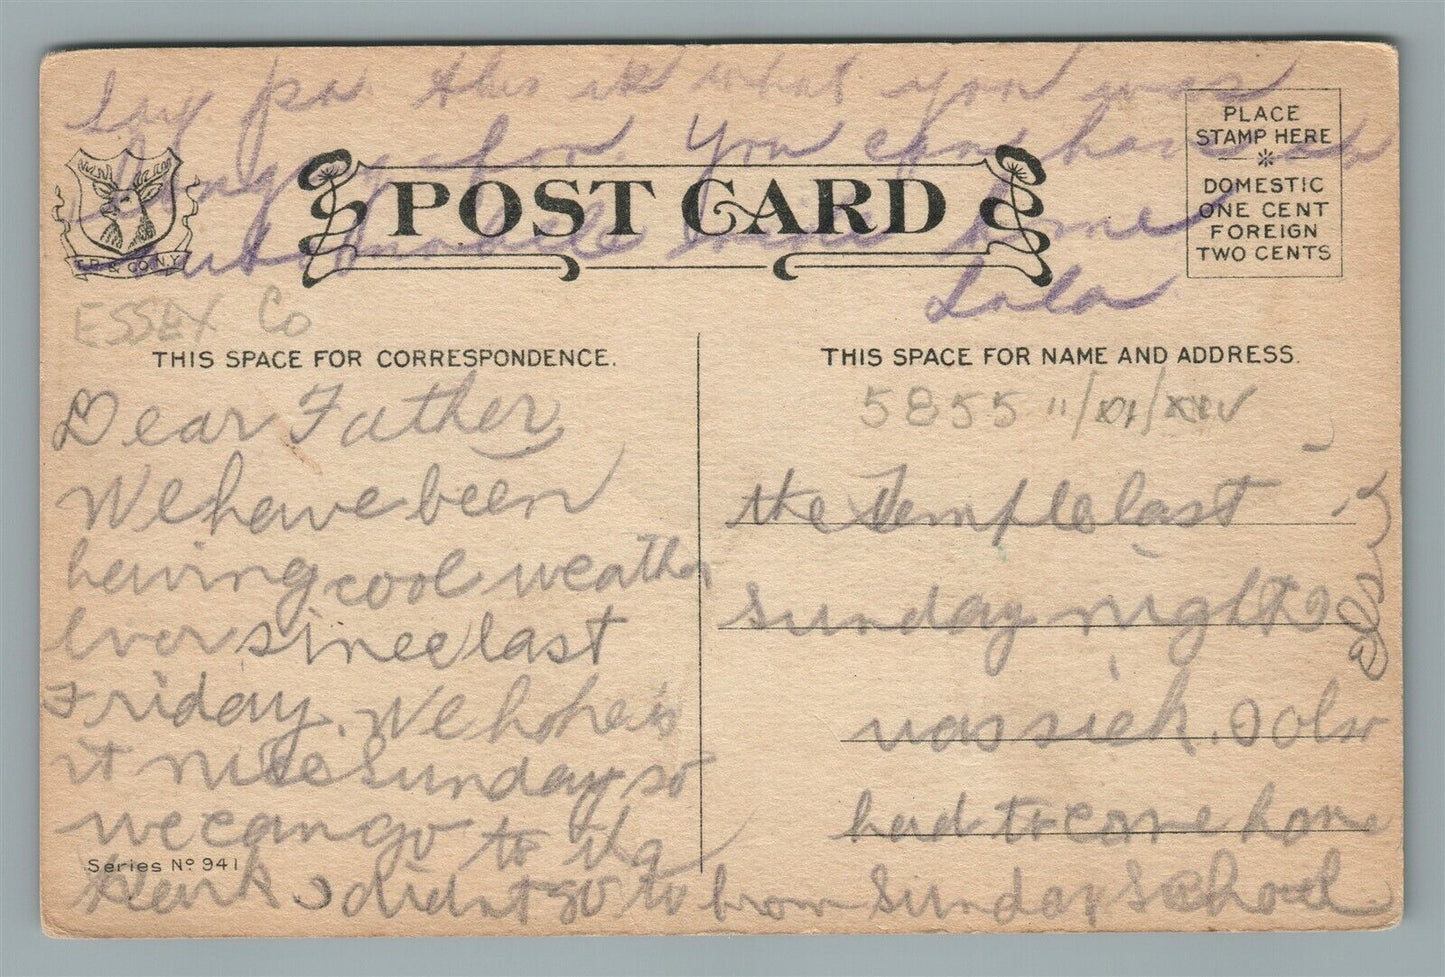 Say pa this is what you was
longing for. You can have an
automobile ride home
Lola
PLACE
STAMP HERE
DOMESTIC
ONE CENT
FOREIGN
TWO CENTS
POST CARD
& CO. N.Y.
ESSEX Co
THIS SPACE FOR CORRESPONDENCE.
Dear Father,
We have been
having cool weather
ever since last
Friday. We hope is
it nice Sunday so
we can go to the
Park I didnt go to
Series No 941
THIS SPACE FOR NAME AND ADDRESS.
5855 11/XI/
the Temple last
Sunday night I
was sick. I also
had to come home
from Sunday School.
Elsie